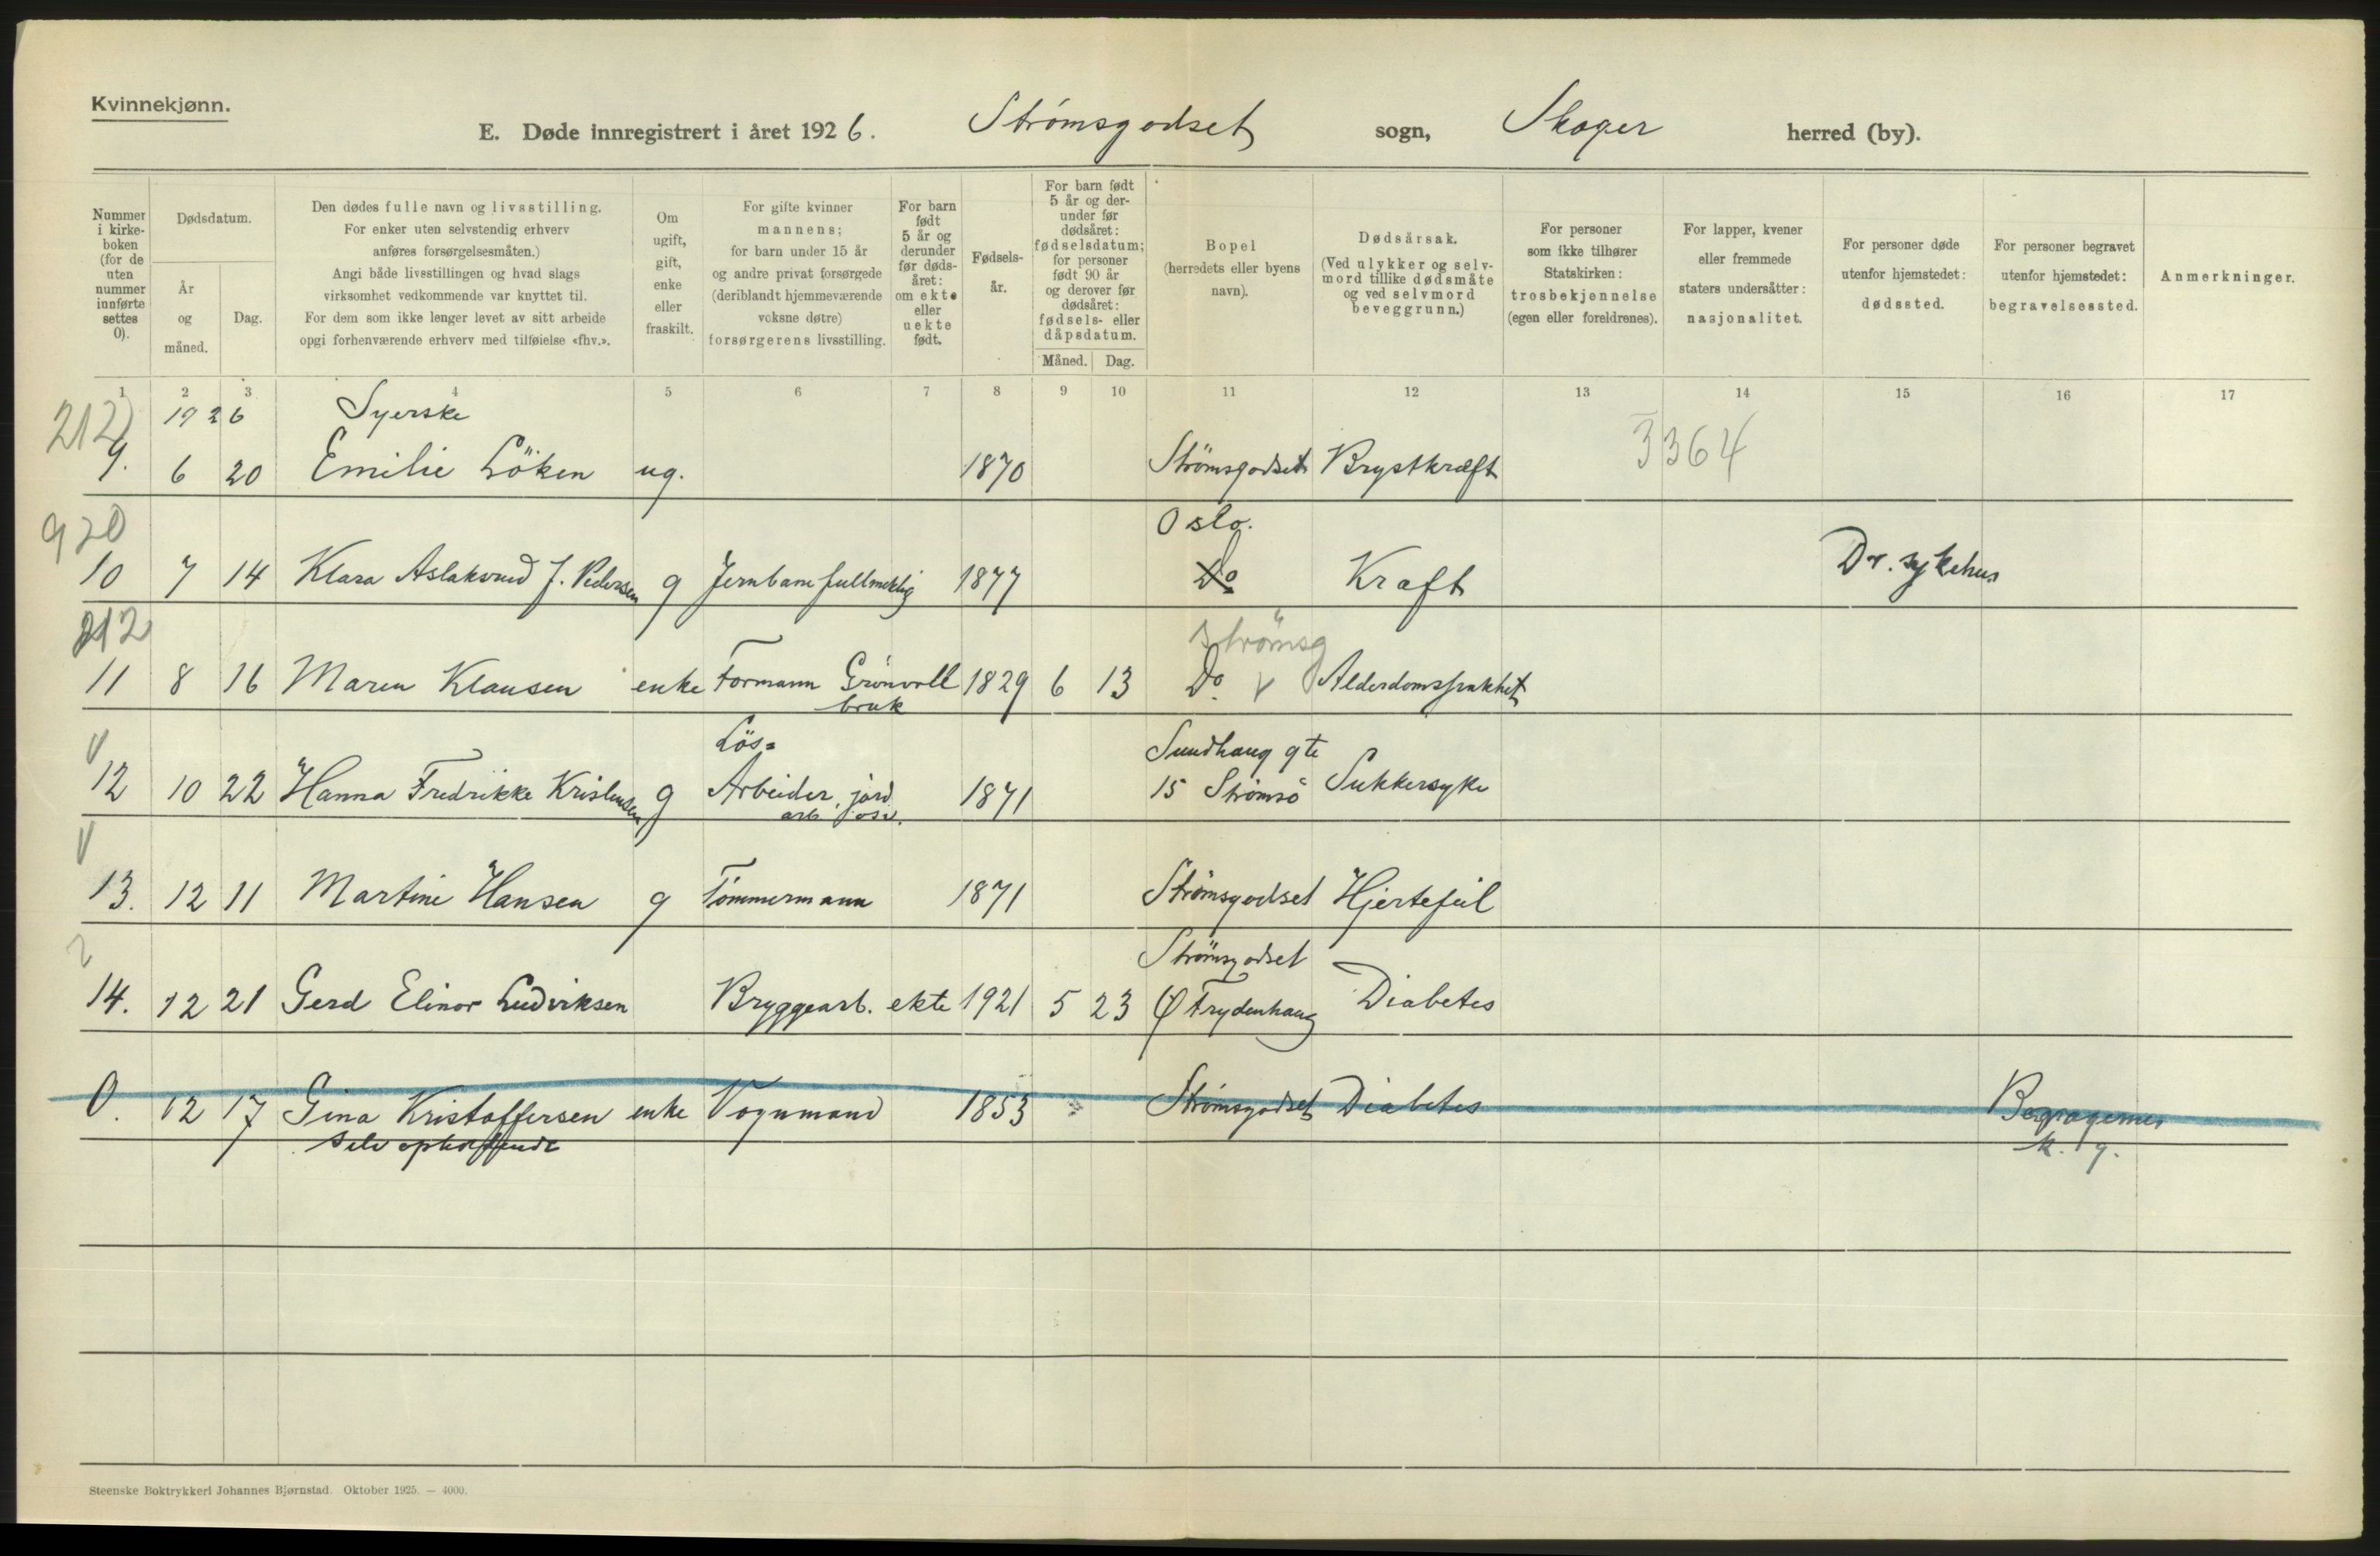 Kvinnekjønn.
E. Døde innregistrert i året 1926. Strømsgodset sogn, Skoger herred (by).
Nummer
i kirke-
boken
(for de
uten
nummer
innførte
settes
0).
Dødsdatum.
År
og
måned.
Dag.
Den dødes fulle navn og livsstilling.
For enker uten selvstendig erhverv
anføres forsørgelsesmåten.)
Angi både livsstillingen og hvad slags
virksomhet vedkommende var knyttet til.
For dem som ikke lenger levet av sitt arbeide
opgi forhenværende erhverv med tilføielse «fhv.».
Om
ugift,
gift,
enke
eller
fraskilt.
For gifte kvinner
mannens;
for barn under 15 år
og andre privat forsørgede
(deriblandt hjemmeværende
voksne døtre)
forsørgerens livsstilling.
For barn
født
5 år og
derunder
før døds-
året:
om ekte
eller
uekte
født.
Fødsels-
år.
For barn født
5 år og der-
under før
dødsåret:
fødselsdatum;
for personer
født 90 år
og derover før
dødsåret:
fødsels- eller
dåpsdatum.
Måned. Dag.
Bopel
(herredets eller byens
navn).
Dødsårsak.
(Ved ulykker og selv-
mord tillike dødsmåte
og ved selvmord
beveggrunn.)
For personer
som ikke tilhører
Statskirken:
trosbekjennelse
(egen eller foreldrenes).
For lapper, kvener
eller fremmede
staters undersåtter:
nasjonalitet.
For personer døde
utenfor hjemstedet:
dødssted.
For personer begravet
utenfor hjemstedet:
begravelsessted.
Anmerkninger.
1 2 3 4 5 6 7 8 9 10 11 12 13 14 15 16 17
212 1926 Syerske
9. 6 20 Emilie Löken ug. 1870 Strömsgodset Brystkræft 3364
920 Oslo.
10 7 14 Klara Aslaksrud f. Pedersen g Jernbanefullmektig 1877 Do Kraft Dr. sykehus
212 Strömsg
11 8 16 Maren Klausen enke Formann Grönvoll 1829 6 13 Do. V Alderdomssvakhet
bruk
V Lös= Sundhaug gte
12 10 22 Hanna Fredrikke Kristensen g Arbeider, jord 1871 15 Strömsö Sukkersyke
arb. osv.
V
13. 12 11 Martine Hansen g Tömmermann 1871 Strömsgodset Hjertefeil
Strömsgodset
14. 12 21 Gerd Elinor Ludviksen Bryggearb. ekte 1921 5 23 Frydenhaug Diabetes
0. 12 17 Gina Kristoffersen enke Vognmand 1853 Strömsgodset Diabetes Bragernes
selv opholdende k. g.
Steenske Boktrykkeri Johannes Bjørnstad. Oktober 1925. — 4000.